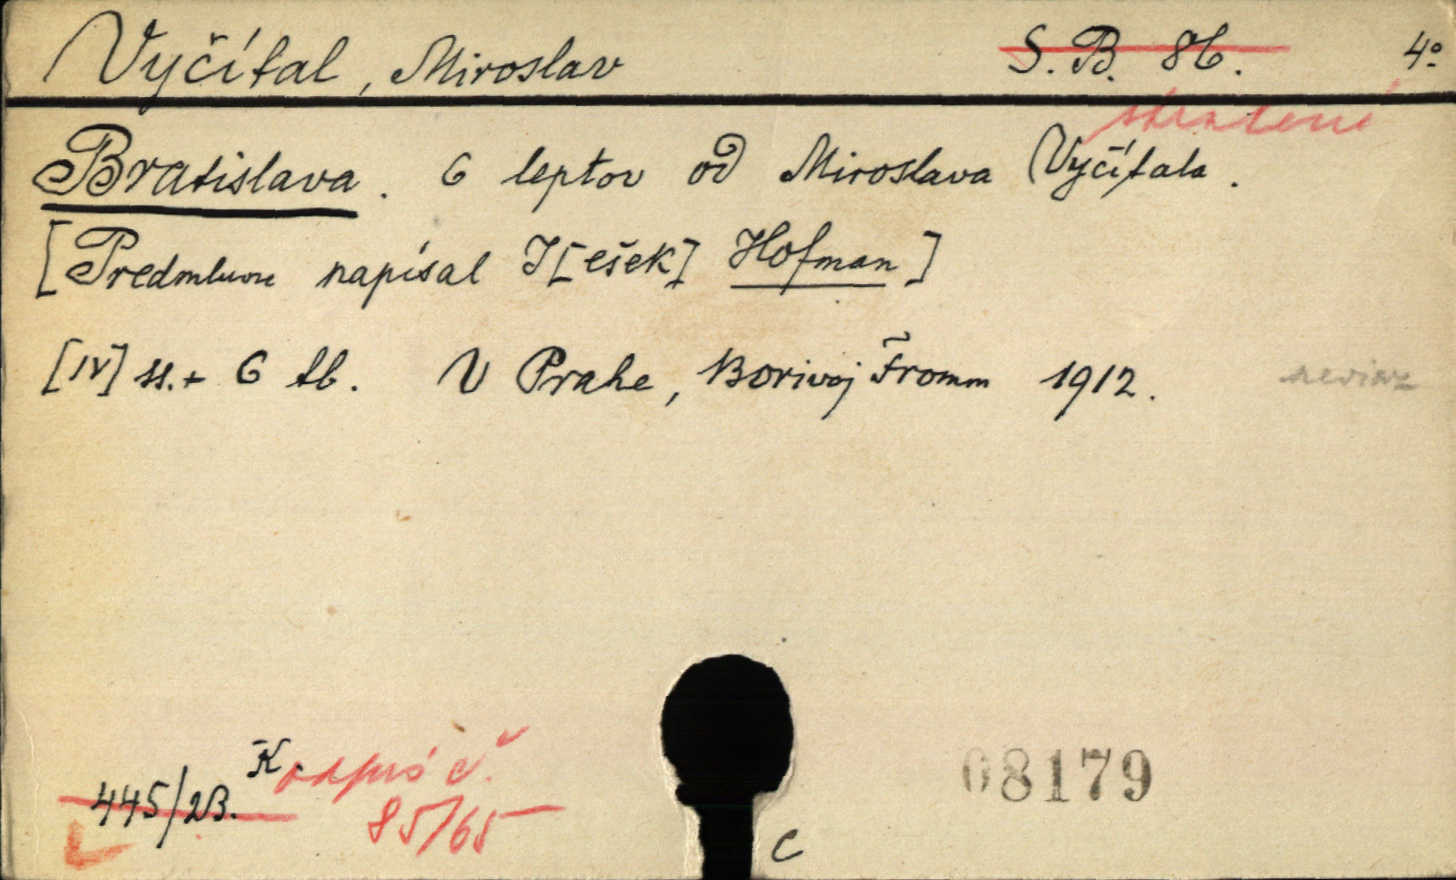 Vyčítal, Miroslav S. B. 86. 4º
stratené
Bratislava. 6 leptov od Miroslava Vyčítala.
[Predmluvu napísal J[ešek] Hofman]
[IV] ss. + 6 tb. V Prahe, Borivoj Fromm 1912. neviaz
K odpis č.
445/2B. 85/65
08179
C